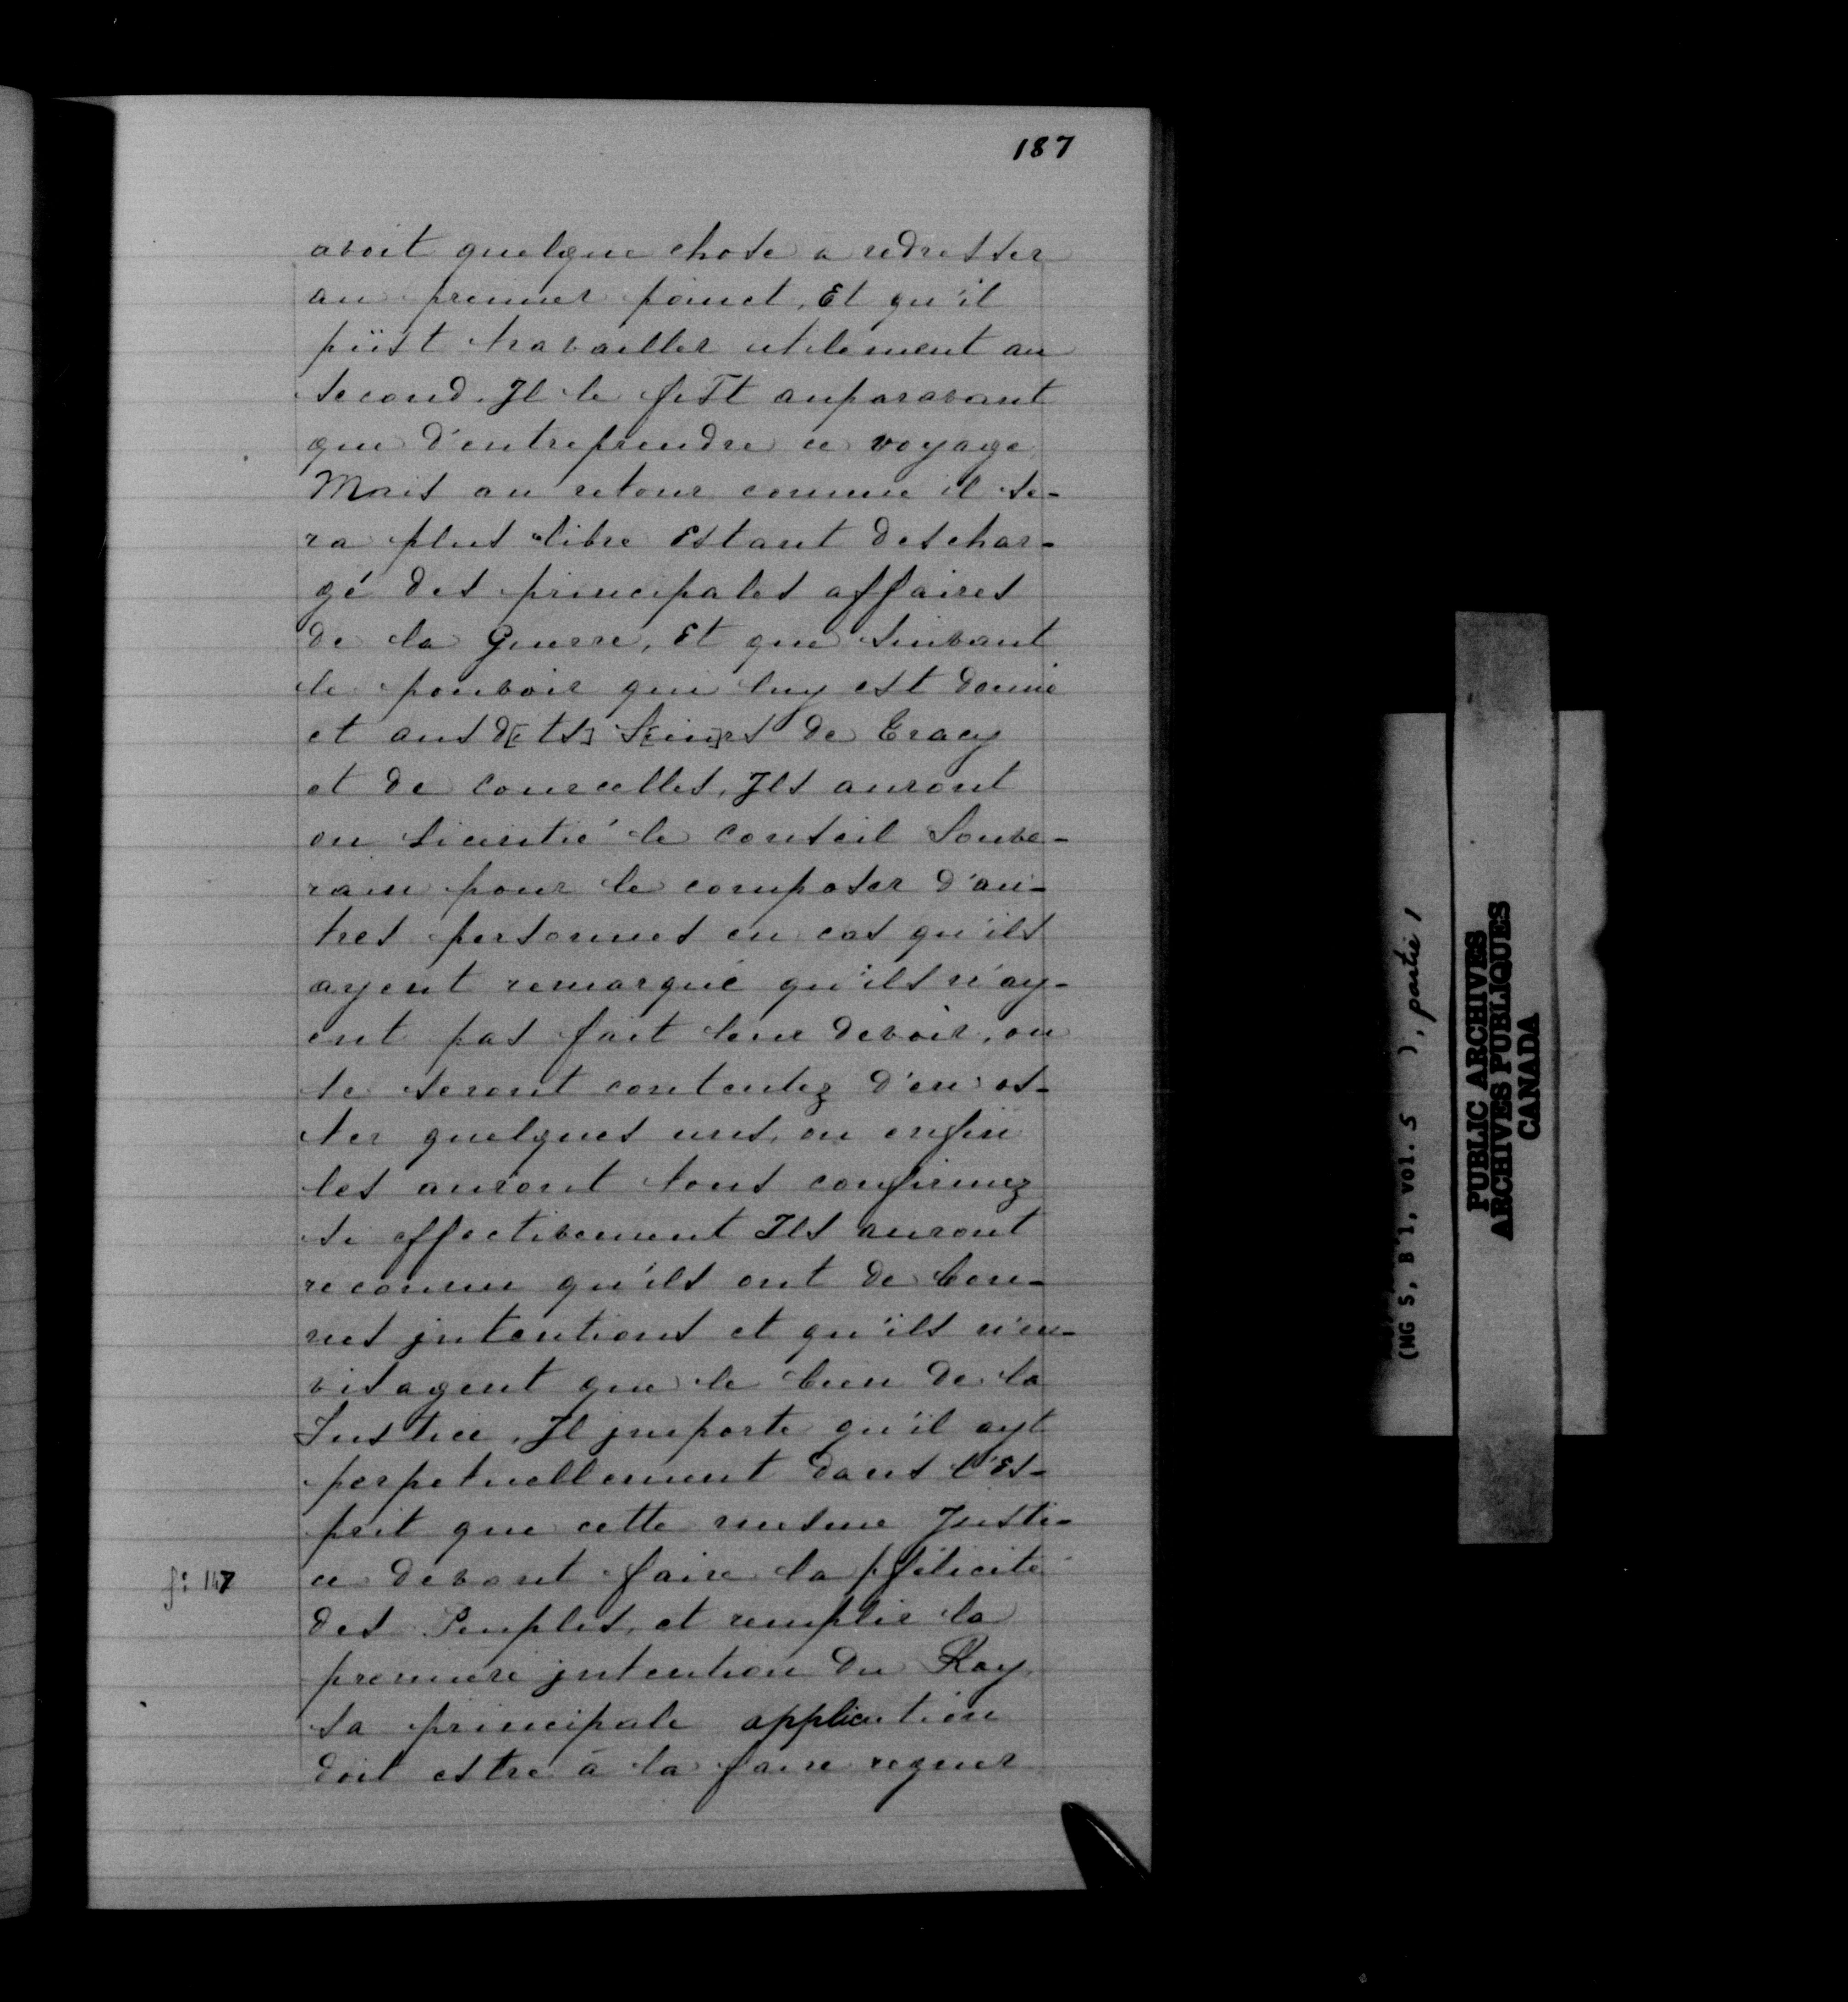 187
avoit quelque chose à redresser
au premier poinct, Et qu'il
pûst travailler utilement au
second. Il le fist auparavant
que d'entreprendre ce voyage
Mais au retour comme il se-
ra plus libre Estant deschar-
gé des principales affaires
de la Guerre, Et que suivant
le pouvoir qui luy est donné
et aus d[ts] S[ieu]rs de Tracy
et de Courcelles, Ils auront
ou licentié le Conseil Souve-
rain pour le composer d'au-
tres personnes en cas qu'ils
ayent remarqué qu'ils n'ay-
ent pas fait leur devoir, ou
se seront contentez d'en os-
ter quelques uns, ou enfin
les auront tous confirmez
si effectivement Ils auront
reconnu qu'ils ont de bon-
nes jntentions et qu'ils n'en-
visagent que le bien de la
Justice, Il jmporte qu'il ayt
perpetuellement dans l'Es-
prit que cette mesme Justi-
f: 147 ce devant faire la félicité
des Peuples, et remplir la
premiere jntention du Roy
sa principale application
doit estre à la faire regner
(MG 5, B 1, vol. 5 ), partie 1
PUBLIC ARCHIVES
ARCHIVES PUBLIQUES
CANADA